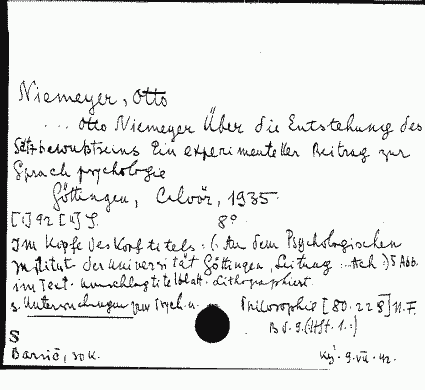 Niemeyer, Otto
... Otto Niemeyer Über die Entstehung des
Satzbewußtseins Ein experimenteller Beitrag zur
Sprachpsychologie
Göttingen, Calvör, 1935
[1] 92 [4] S. 8°
Im Kopfe des Kopftitels: (Aus dem Psychologischen
Institut der Universität Göttingen, Leitung: Ach) 5 Abb.
im Text. Umschlagtitelblatt. Lithographiert.
s. Untersuchungen zur Psych. u. Philosophie [80.228] N.F.
Bd. 9. (Hft. 1..)
S
Barsič, 30 K. Ký. 9. VII. 42.